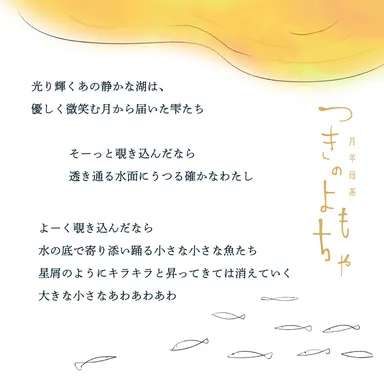 光り輝くあの静かな湖は、
優しく微笑む月から届いた雫たち
そーっと覗き込んだなら
透き通る水面にうつる確かなわたし
よーく覗き込んだなら
水の底で寄り添い踊る小さな小さな魚たち
星屑のようにキラキラと昇ってきては消えていく
大きな小さなあわあわあわ
つきのよもちゃ
月羊母茶